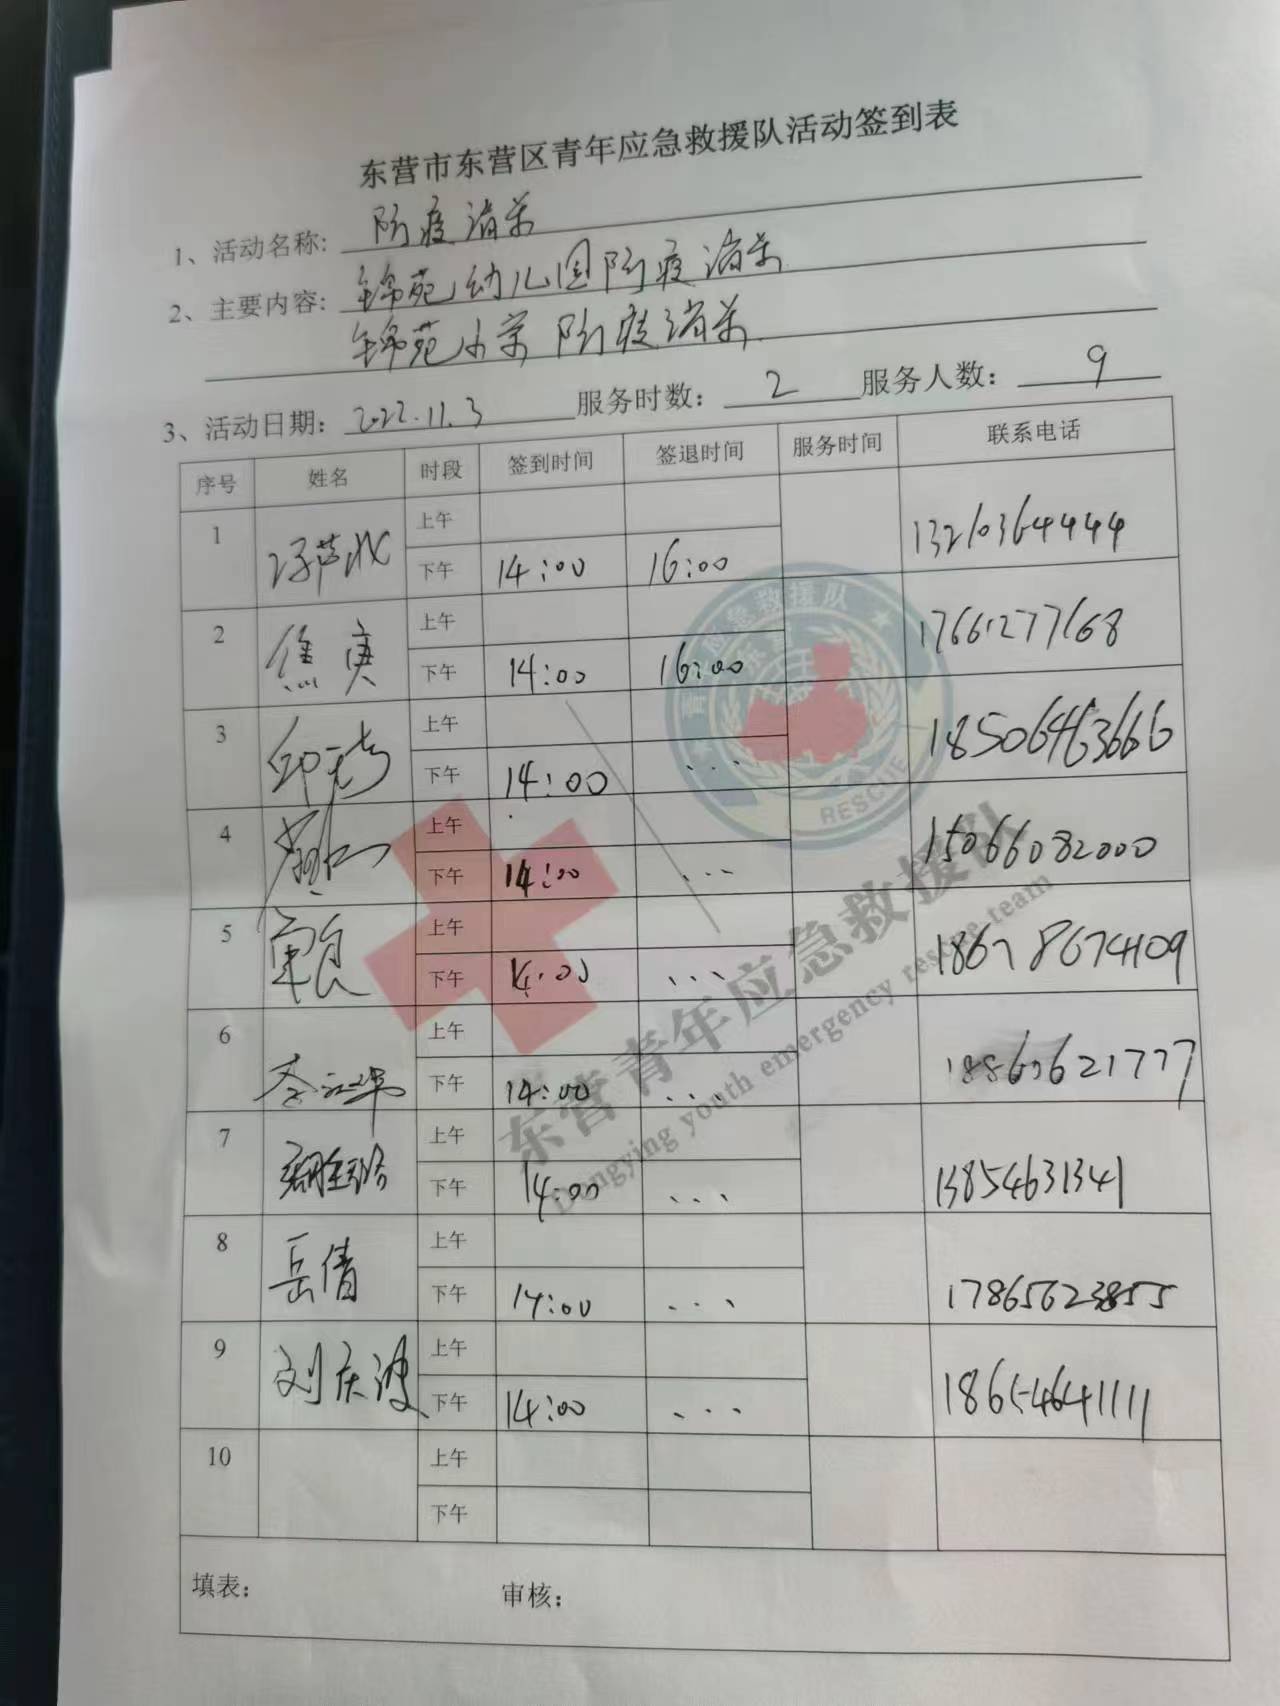 东营市东营区青年应急救援队活动签到表
1、活动名称: 防疫消杀
2、主要内容: 锦苑幼儿园防疫消杀
锦苑小学防疫消杀
3、活动日期: 2022.11.3 服务时数: 2 服务人数: 9
序号 姓名 时段 签到时间 签退时间 服务时间 联系电话
1 上午 13210364444
下午 14:00 16:00
2 焦庚 上午 17661277168
下午 14:00 16:00
3 上午 18506463666
下午 14:00 ...
4 上午 15066082000
下午 14:00 ...
5 上午 18678674109
下午 14:00 ...
6 上午 18860621777
下午 14:00 ...
7 上午 13854631341
下午 14:00 ...
8 岳倩 上午 17865623855
下午 14:00 ...
9 刘庆波 上午 18654641111
下午 14:00 ...
10 上午
下午
填表: 审核:
青年应急救援队
RESCUE
东营青年应急救援队
Dongying youth emergency rescue team